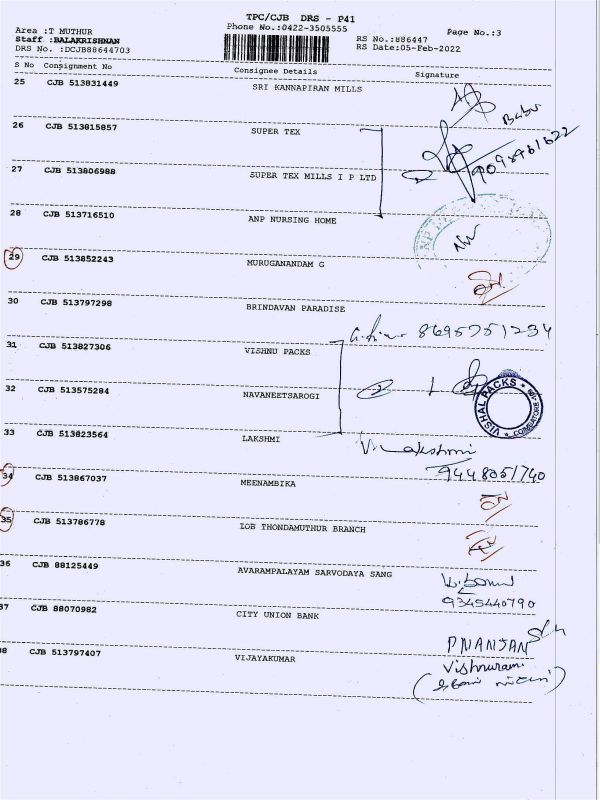 TPC/CJB DRS - P41
Area :T MUTHUR
Phone No.:0422-3505555
Page No.:3
Staff :BALAKRISHNAN
RS No.:886447
DRS No. :DCJB88644703
RS Date:05-Feb-2022
S No Consignment No Consignee Details Signature
25 CJB 513831449 SRI KANNAPIRAN MILLS
Babu
26 CJB 513815857 SUPER TEX
9098961622
27 CJB 513806988 SUPER TEX MILLS I P LTD
28 CJB 513716510 ANP NURSING HOME
29 CJB 513852243 MURUGANANDAM G
30 CJB 513797298 BRINDAVAN PARADISE
8695751234
31 CJB 513827306 VISHNU PACKS
32 CJB 513575284 NAVANEETSAROGI
VISHAL PACKS
COIMBATORE
33 CJB 513823564 LAKSHMI
V. Lakshmi
9448051740
34 CJB 513867037 MEENAMBIKA
35 CJB 513786778 IOB THONDAMUTHUR BRANCH
36 CJB 88125449 AVARAMPALAYAM SARVODAYA SANG
9345440790
37 CJB 88070982 CITY UNION BANK
PNANJAN
38 CJB 513797407 VIJAYAKUMAR
Vishnuram